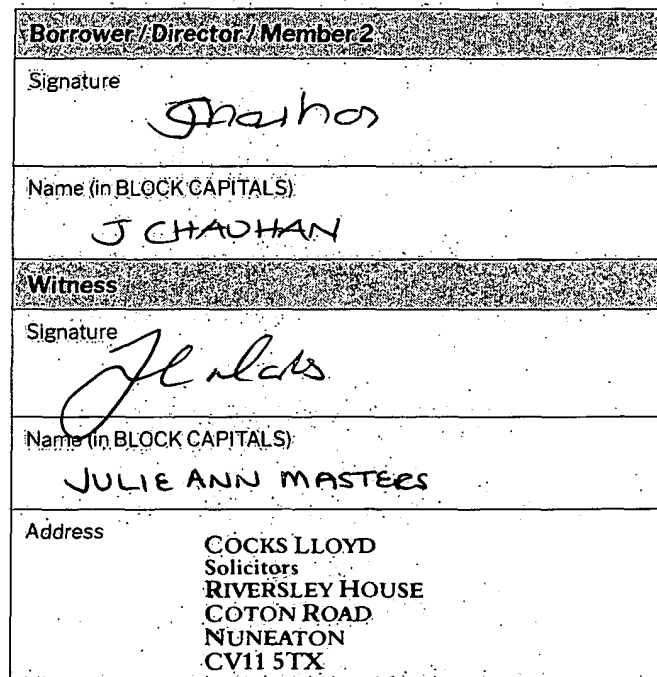 Borrower / Director / Member 2
Signature
Name (in BLOCK CAPITALS)
J CHAUHAN
Witness
Signature
Name (in BLOCK CAPITALS)
JULIE ANN MASTERS
Address
COCKS LLOYD
Solicitors
RIVERSLEY HOUSE
COTON ROAD
NUNEATON
CV11 5TX